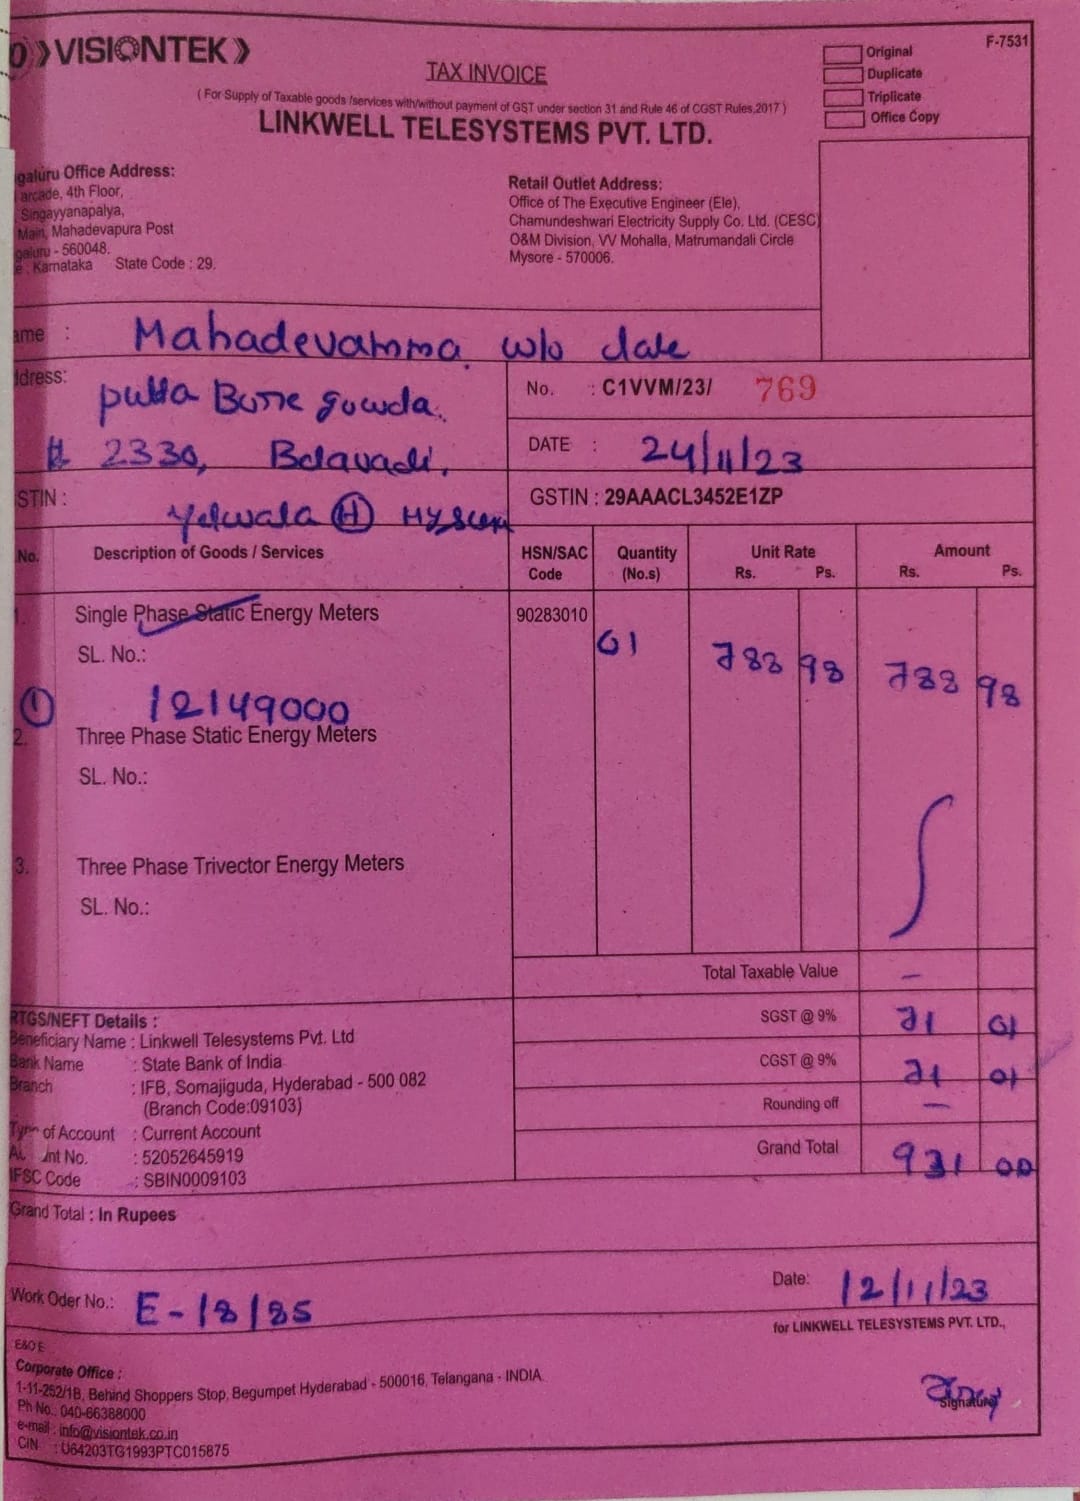 VISIONTEK
F-7531
TAX INVOICE
Original
Duplicate
Triplicate
Office Copy
( For Supply of Taxable goods /services with/without payment of GST under section 31 and Rule 46 of CGST Rules,2017 )
LINKWELL TELESYSTEMS PVT. LTD.
galuru Office Address:
arcade, 4th Floor,
Singayyanapalya,
Main, Mahadevapura Post
galuru - 560048.
e : Karnataka State Code : 29.
Retail Outlet Address:
Office of The Executive Engineer (Ele),
Chamundeshwari Electricity Supply Co. Ltd. (CESC)
O&M Division, VV Mohalla, Matrumandali Circle
Mysore - 570006.
ame : Mahadevamma w/o late
ddress: putta Borre gowda.
# 2330, Belavadi,
No. : C1VVM/23/ 769
DATE : 24/11/23
STIN : Yelwala (H)
GSTIN : 29AAACL3452E1ZP
No. Description of Goods / Services HSN/SAC Code Quantity (No.s) Unit Rate Rs. Ps. Amount Rs. Ps.
1. Single Phase Static Energy Meters 90283010
SL. No.: 01 788 98 788 98
① 12149000
2. Three Phase Static Energy Meters
SL. No.:
3. Three Phase Trivector Energy Meters
SL. No.:
Total Taxable Value –
SGST @ 9% 71 01
CGST @ 9% 71 01
Rounding off –
Grand Total 931 00
RTGS/NEFT Details :
Beneficiary Name : Linkwell Telesystems Pvt. Ltd
Bank Name : State Bank of India
Branch : IFB, Somajiguda, Hyderabad - 500 082
(Branch Code:09103)
Type of Account : Current Account
A unt No. : 52052645919
IFSC Code : SBIN0009103
Grand Total : In Rupees
Work Oder No.: E-18/85
Date: 12/11/23
for LINKWELL TELESYSTEMS PVT. LTD.,
Signature
E&O E
Corporate Office :
1-11-252/1B, Behind Shoppers Stop, Begumpet Hyderabad - 500016, Telangana - INDIA
Ph No.: 040-66388000
e-mail : info@visiontek.co.in
CIN : U64203TG1993PTC015875